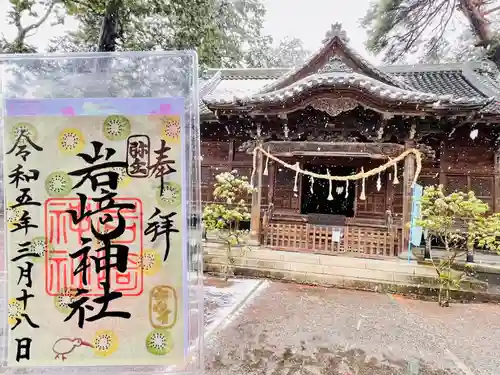 奉拝
弥生
岩﨑神社
令和五年三月十八日